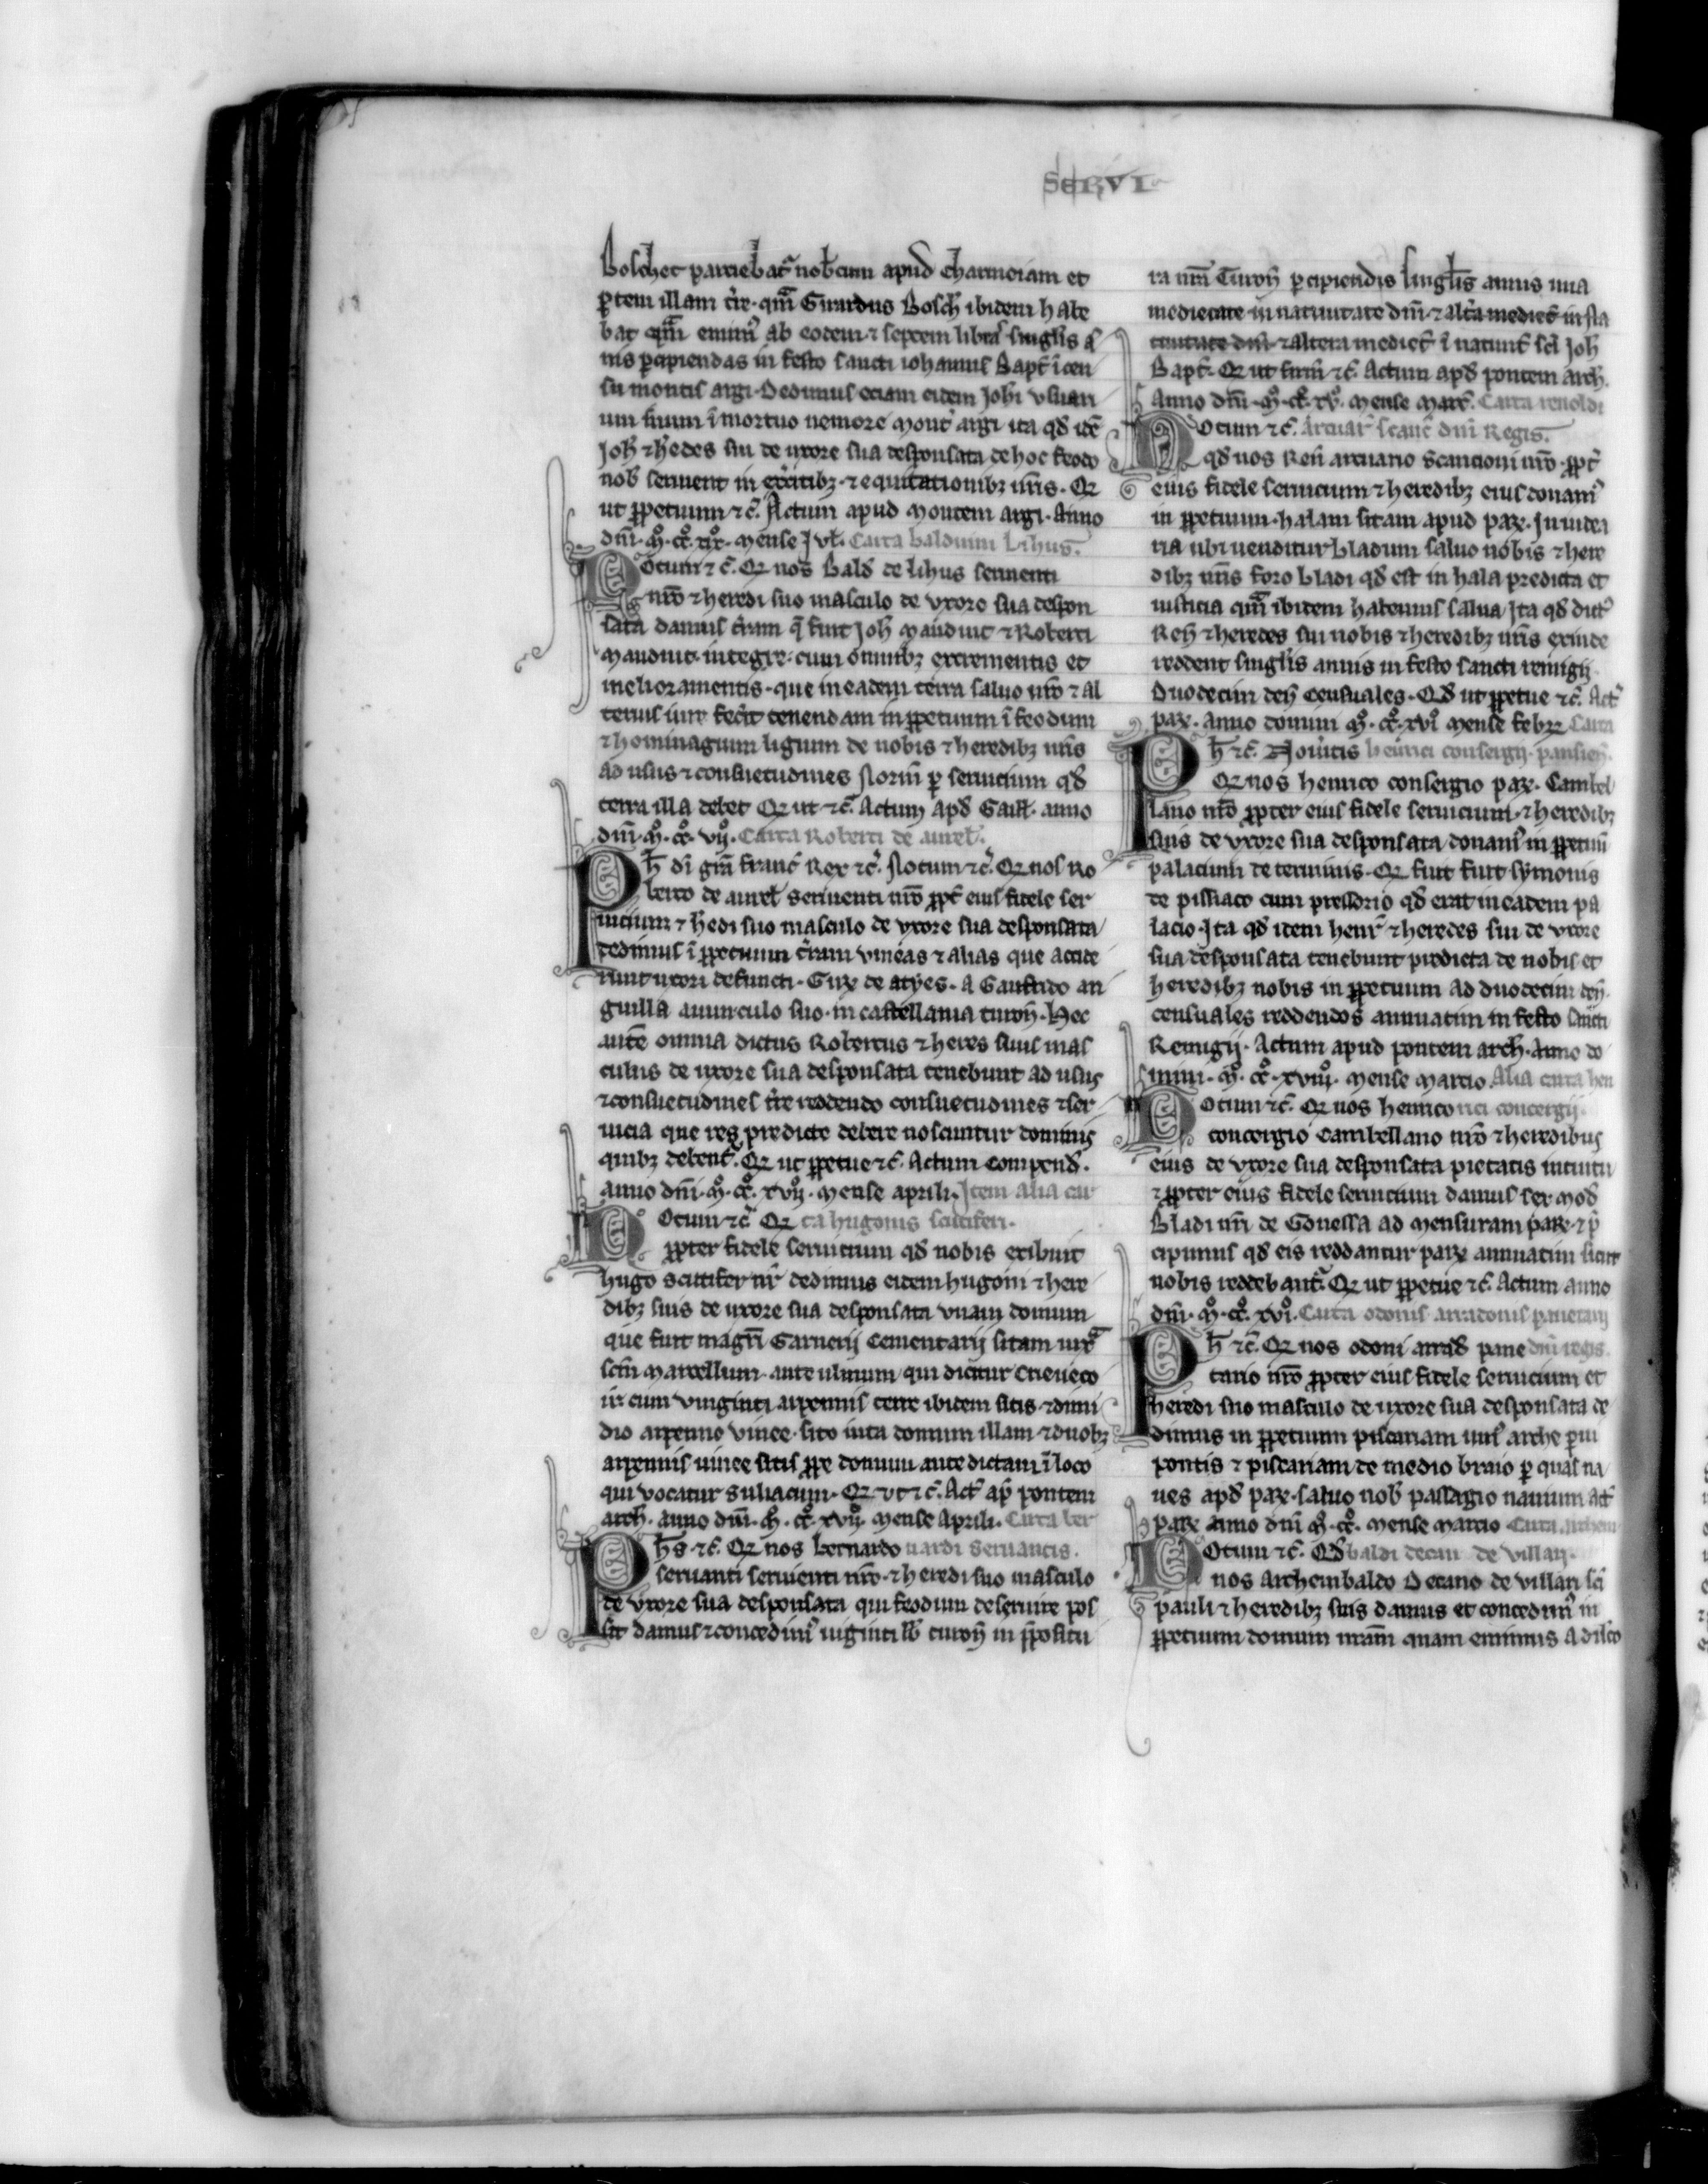 SERVI
Boschet parciebat᷑ nobcum apud charmeiam et
ꝑtem illam t̾re · qm̃ Girardus Bosch ibidem habe
bat qm̃ emim᷒ ab eodem ⁊ septem libra᷑ singl̃is a᷒
nis percipiendas in festo sancti iohannis Bapt̃ ĩ cen
su montis argi · Dedimus eciam eidem Joh̃i vsuari
um suum ĩ mortuo nemore mont̃ argi ita qd̃ idẽ
Joh̃ ⁊ h̃edes sui de uxore sua desponsata de hoc feodo
nob̃ seruient in ex̾citibꝫ · ⁊ equitationibꝫ nr̃is · Qꝫ
ut ꝑpetuum ⁊c̃. Actum apud Montem argi · Anno
dñi · mͦ · ccͦ · xixͦ · mense Jul̃. Carta balduini Lihus.
Notum ⁊c̃. Qꝫ nos Bald̃ de lihus seruienti
nr̃o ⁊ heredi suo masculo de vxore sua despon
sata damus t̾ram q̃ fuit Joh̃ mauduit ⁊ Roberti
mauduit · integre · cum omnibꝫ excrementis et
meliozamentis · que in eadem terra saluo nr̃o ⁊ al
terius iure fec̃it tenendam in ꝑpetuum ĩ feodum
⁊ hominagium ligium de nobis ⁊ heredibꝫ nr̃is
ad usus ⁊ consuetudines Norm̃ ꝑ seruicium qd̃
terra illa debet Qꝫ ut ⁊c̃. Actum apd̃ Gaill̃. anno
dñi · mͦ · ccͦ · viiͦ. Carta Roberti de aurel̃.
Ph̃ dĩ grã franc̃ Rex ⁊c̃. Notum ⁊c̃. Qꝫ nos Ro
berto de aurel̃ seruienti nr̃o ꝓpt̃ eius fidele ser
uicium ⁊ h̃edi suo masculo de vxore sua desponsata
dedimus ĩ ꝑpetuum t̾ram vineas ⁊ alias que accide
runt uxori defuncti · Guꝝ de atyes · a Gaufrido an
guilla auunculo suo · in castellania turoñ · Hec
autẽ omnia dictus Robertus ⁊ heres suus mas
culus de uxore sua desponsata tenebunt ad usus
⁊ consuetudines t̾re reddendo consuetudines ⁊ ser
uicia que res predicte debere noscuntur dominis
quibꝫ debent᷑. Qꝫ ut ꝑpetue ⁊c̃. Actum compend̃.
anno dñi · mͦ · ccͦ · xviiͦ · mense aprili. Item alia car
Notum ⁊c̃ Qꝫ ta hugonis scutiferi.
ꝓpter fidele seruicium qd̃ nobis exibuit
hugo scutifer nr̃ dedimus eidem hugoni ⁊ here
dibꝫ suis de uxore sua desponsata vnam domum
que fuit magr̃i Garnerij cementarij sitam iuxᵃ
sc̃m marcellum · ante ulmum · qui dicitur Crieueco
ir · cum vinginti arpennis terre ibidem sitis ⁊ dimi
dio arpenno vinee · sito iuxta domum illam ⁊ duobꝫ
arpennis uinee sitis ꝓpe domum ante dictam ĩ loco
qui vocatur suliacum · Qꝫ ut ⁊c̃. Act̃ ap̃ pontem
arch̃. anno dñi · m̃ · ccͦ · xviiͦ · mense aprili. Carta ber
Ph̃s · ⁊c̃. Qꝫ nos bernardo nardi seruantis.
seruanti seruienti nr̃o · ⁊ heredi suo masculo
de vxore sua desponsata qui feodum deseruire pos
sit damus ⁊ concedim᷒ uiginti lib̃ turoñ in p̃positu
ra nr̃a Turoñ percipiendis singl̃is annis una
medietate in natiuitate dñi ⁊ alt̾a mediet̃ in na
tiuitate dñi ⁊ altera mediet̃ ĩ natiuit̃ sc̃i Joh̃
Bapt̃. Qꝫ ut firm̃ ⁊c̃. Actum apd̃ pontem arch̃.
Anno dñi · mͦ · ccͦ · xvͦ. mense marc̃. Carta renoldi
Notum ⁊c̃. arcuar̃ scanc̃ dñi Regis.
qd̃ nos Reñ arcuario scancioni nr̃o · ꝓpt̃
eius fidele seruicium ⁊ heredibꝫ eius donam᷒
in ꝑpetuum · halam sitam apud paꝝ. In iudea
ria ubi uenditur bladum saluo nobis ⁊ here
dibꝫ nr̃is foro bladi qd̃ est in hala predicta et
iusticia qm̃ ibidem habemus salua Ita qd̃ dict᷒
Reñ ⁊ heredes sui nobis ⁊ heredibꝫ nr̃is exinde
reddent singl̃is annis in festo sancti remigij
duodecim deñ censuales · Qd̃ ut ꝑpetue ⁊c̃. Act̃
paꝝ. anno domini mͦ · ccͦ · xviͦ mense febꝛ Carta
Ph̃ ⁊c̃. Nouitis henrici consergij · parisieñ.
Qꝫ nos henrico consergio paꝝ · Cambel
lano nr̃o ꝓpter eius fidele seruicium · ⁊ heredibꝫ
suis de vxore sua desponsata donam᷒ in ꝑpetuũ
palacium de terminis · Qꝫ fuit fuit symonis
de pissiaco cum pressorio qd̃ erat in eadem pa
lacio · Ita qd̃ idem henr̃ ⁊ heredes sui de vxore
sua desponsata tenebunt predicta de nobis et
heredibꝫ nobis in ꝑpetuum ad duodecim deñ.
censuales reddendos annuatim in festo sancti
Remigij · Actum apud pontem arch̃. Anno do
mini · mͦ · ccͦ · xviiiͦ · mense marcio Alia carta hen
Notum ⁊c̃. Qꝫ nos henrico rici concergij
concergio cambellano nr̃o ⁊ heredibus
eius de vxore sua desponsata pietatis intuitu
⁊ ꝓpter eius fidele seruicium damus sex mod̃
Bladi nr̃i de Gonessa ad mensuram paꝝ · ⁊ p̃
cipimus qd̃ eis reddantur paꝝ annuatim sicut
nobis reddebant᷑. Qꝫ ut ꝑpetue ⁊c̃. Actum anno
dñi · mͦ · ccͦ · xviͦ. Carta odonis arradonis panetarij
Ph̃ ⁊c̃. Qꝫ nos odoni arrad̃ pane dñi regis.
tario nr̃o ꝓpter eius fidele seruicium et
heredi suo masculo de uxore sua desponsata de
dimus in ꝑpetuum piscariam uni᷒ arche parui
pontis ⁊ piscariam de medio braio ꝑ quas na
ues apd̃ paꝝ · saluo nob̃ passagio nauium act̃
paꝝ anno dñi mͦ · ccͦ · mense marcio Carta archem
Notum ⁊c̃. Qd̃ baldi decani de villari.
nos Archembaldo Decano de villari sc̃i
pauli ⁊ heredibꝫ suis damus et concedim᷒ in
ꝑpetuum domum nr̃am quam emimus a dil̃co